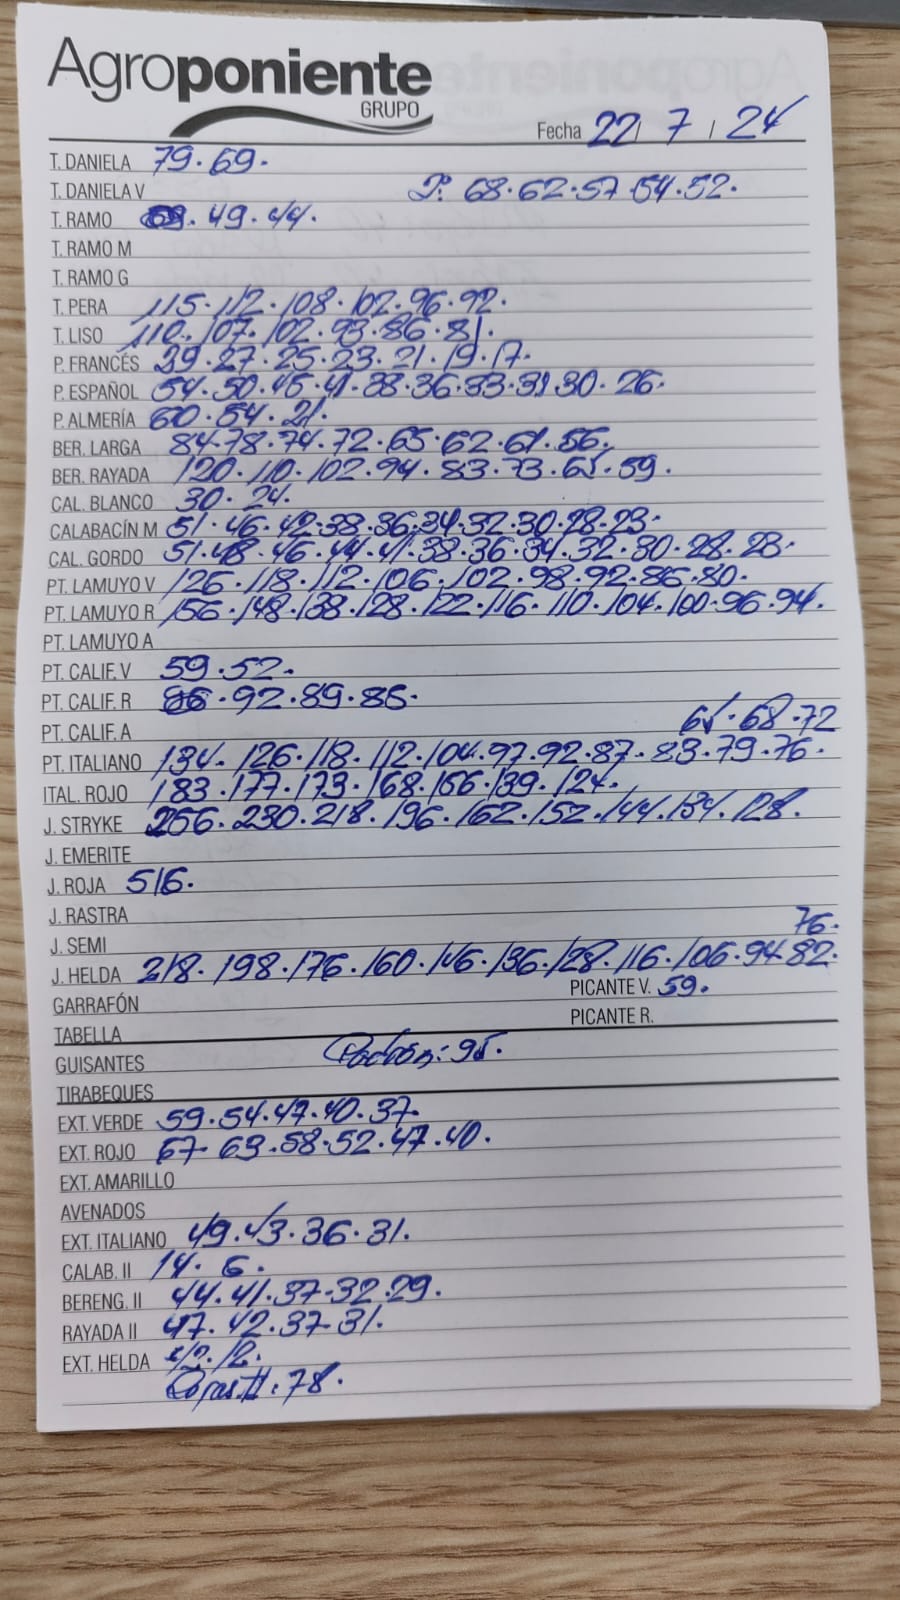 Agroponiente
GRUPO
Fecha 22/ 7 / 24
T. DANIELA 79. 69.
T. DANIELA V P. 68. 62. 57. 54. 52.
T. RAMO . 49. 44.
T. RAMO M
T. RAMO G
T. PERA 115. 112. 108. 102. 96. 92.
T. LISO 110. 107. 102. 93. 86. 81.
P. FRANCÉS 29. 27. 25. 23. 21. 19. 17.
P. ESPAÑOL 54. 50. 45. 41. 38. 36. 33. 31 30. 26.
P. ALMERÍA 60. 54. 21.
BER. LARGA 84. 78. 74. 72. 65. 62. 61. 56.
BER. RAYADA 120. 110. 102. 94. 83. 73. 65. 59.
CAL. BLANCO 30. 24.
CALABACÍN M 51. 46. 42. 38. 36. 34. 32. 30. 28. 23.
CAL. GORDO 51. 48. 46. 44. 41. 38. 36. 34. 32. 30. 28. 23.
PT. LAMUYO V 126. 118. 112. 106. 102. 98. 92. 86. 80.
PT. LAMUYO R 156. 148. 138. 128. 122. 116. 110. 104. 100. 96. 94.
PT. LAMUYO A
PT. CALIF. V 59. 52.
PT. CALIF. R . 92. 89. 85.
PT. CALIF. A 65. 68. 72
PT. ITALIANO 134. 126. 118. 112. 104. 97. 92. 87. 83. 79. 76.
ITAL. ROJO 183. 177. 173. 168. 156. 139. 124.
J. STRYKE 256. 230. 218. 196. 162. 152. 144. 134. 128.
J. EMERITE
J. ROJA 516.
J. RASTRA
76.
J. SEMI
J. HELDA 218. 198. 176. 160. 146. 136. 128. 116. 106. 94. 82.
GARRAFÓN PICANTE V. 59.
TABELLA PICANTE R.
GUISANTES Padrón: 95.
TIRABEQUES
EXT. VERDE 59. 54. 47. 40. 37.
EXT. ROJO 67. 63. 58. 52. 47. 40.
EXT. AMARILLO
AVENADOS
EXT. ITALIANO 49. 43. 36. 31.
CALAB. II 14. 6.
BERENG. II 44. 41. 37. 32. 29.
RAYADA II 47. 42. 37. 31.
EXT. HELDA 12.
II: 78.